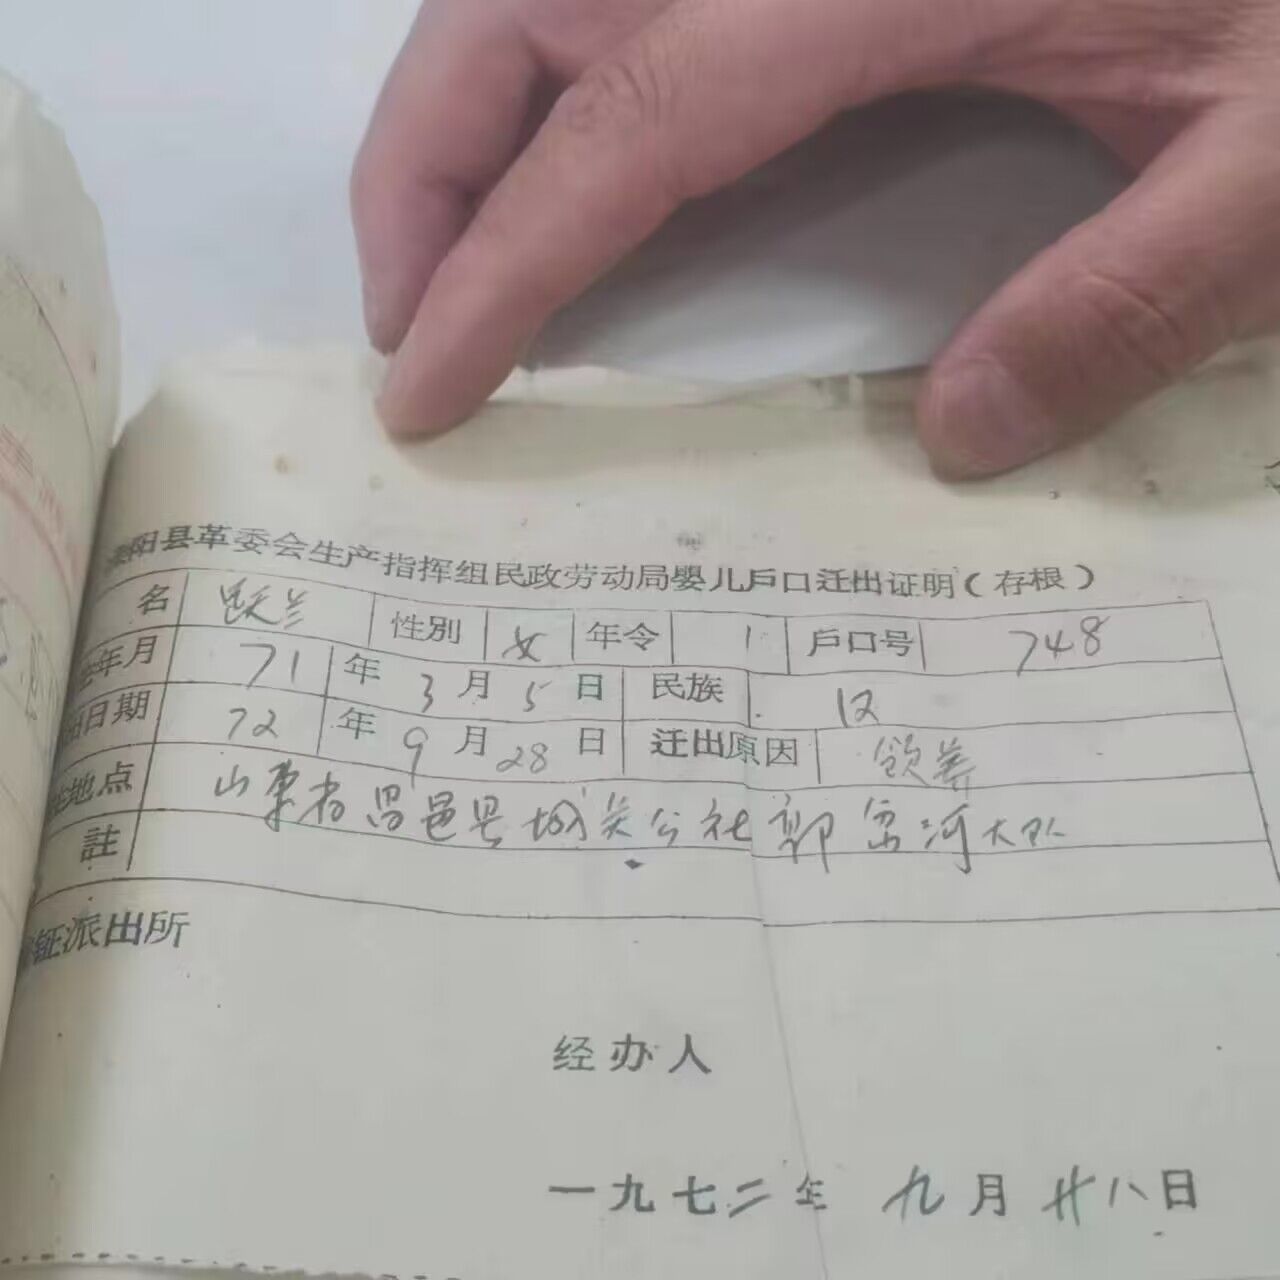 阳县革委会生产指挥组民政劳动局婴儿戶口迁出证明(存根)
名 兰 性别 女 年令 1 戶口号 748
年月 71 年 3 月 5 日 民族 汉
日期 72 年 9 月 28 日 迁出原因 领养
地点 山东省昌邑县城关公社郭家河大队
註
派出所
经办人
一九七二年 九月廿八日